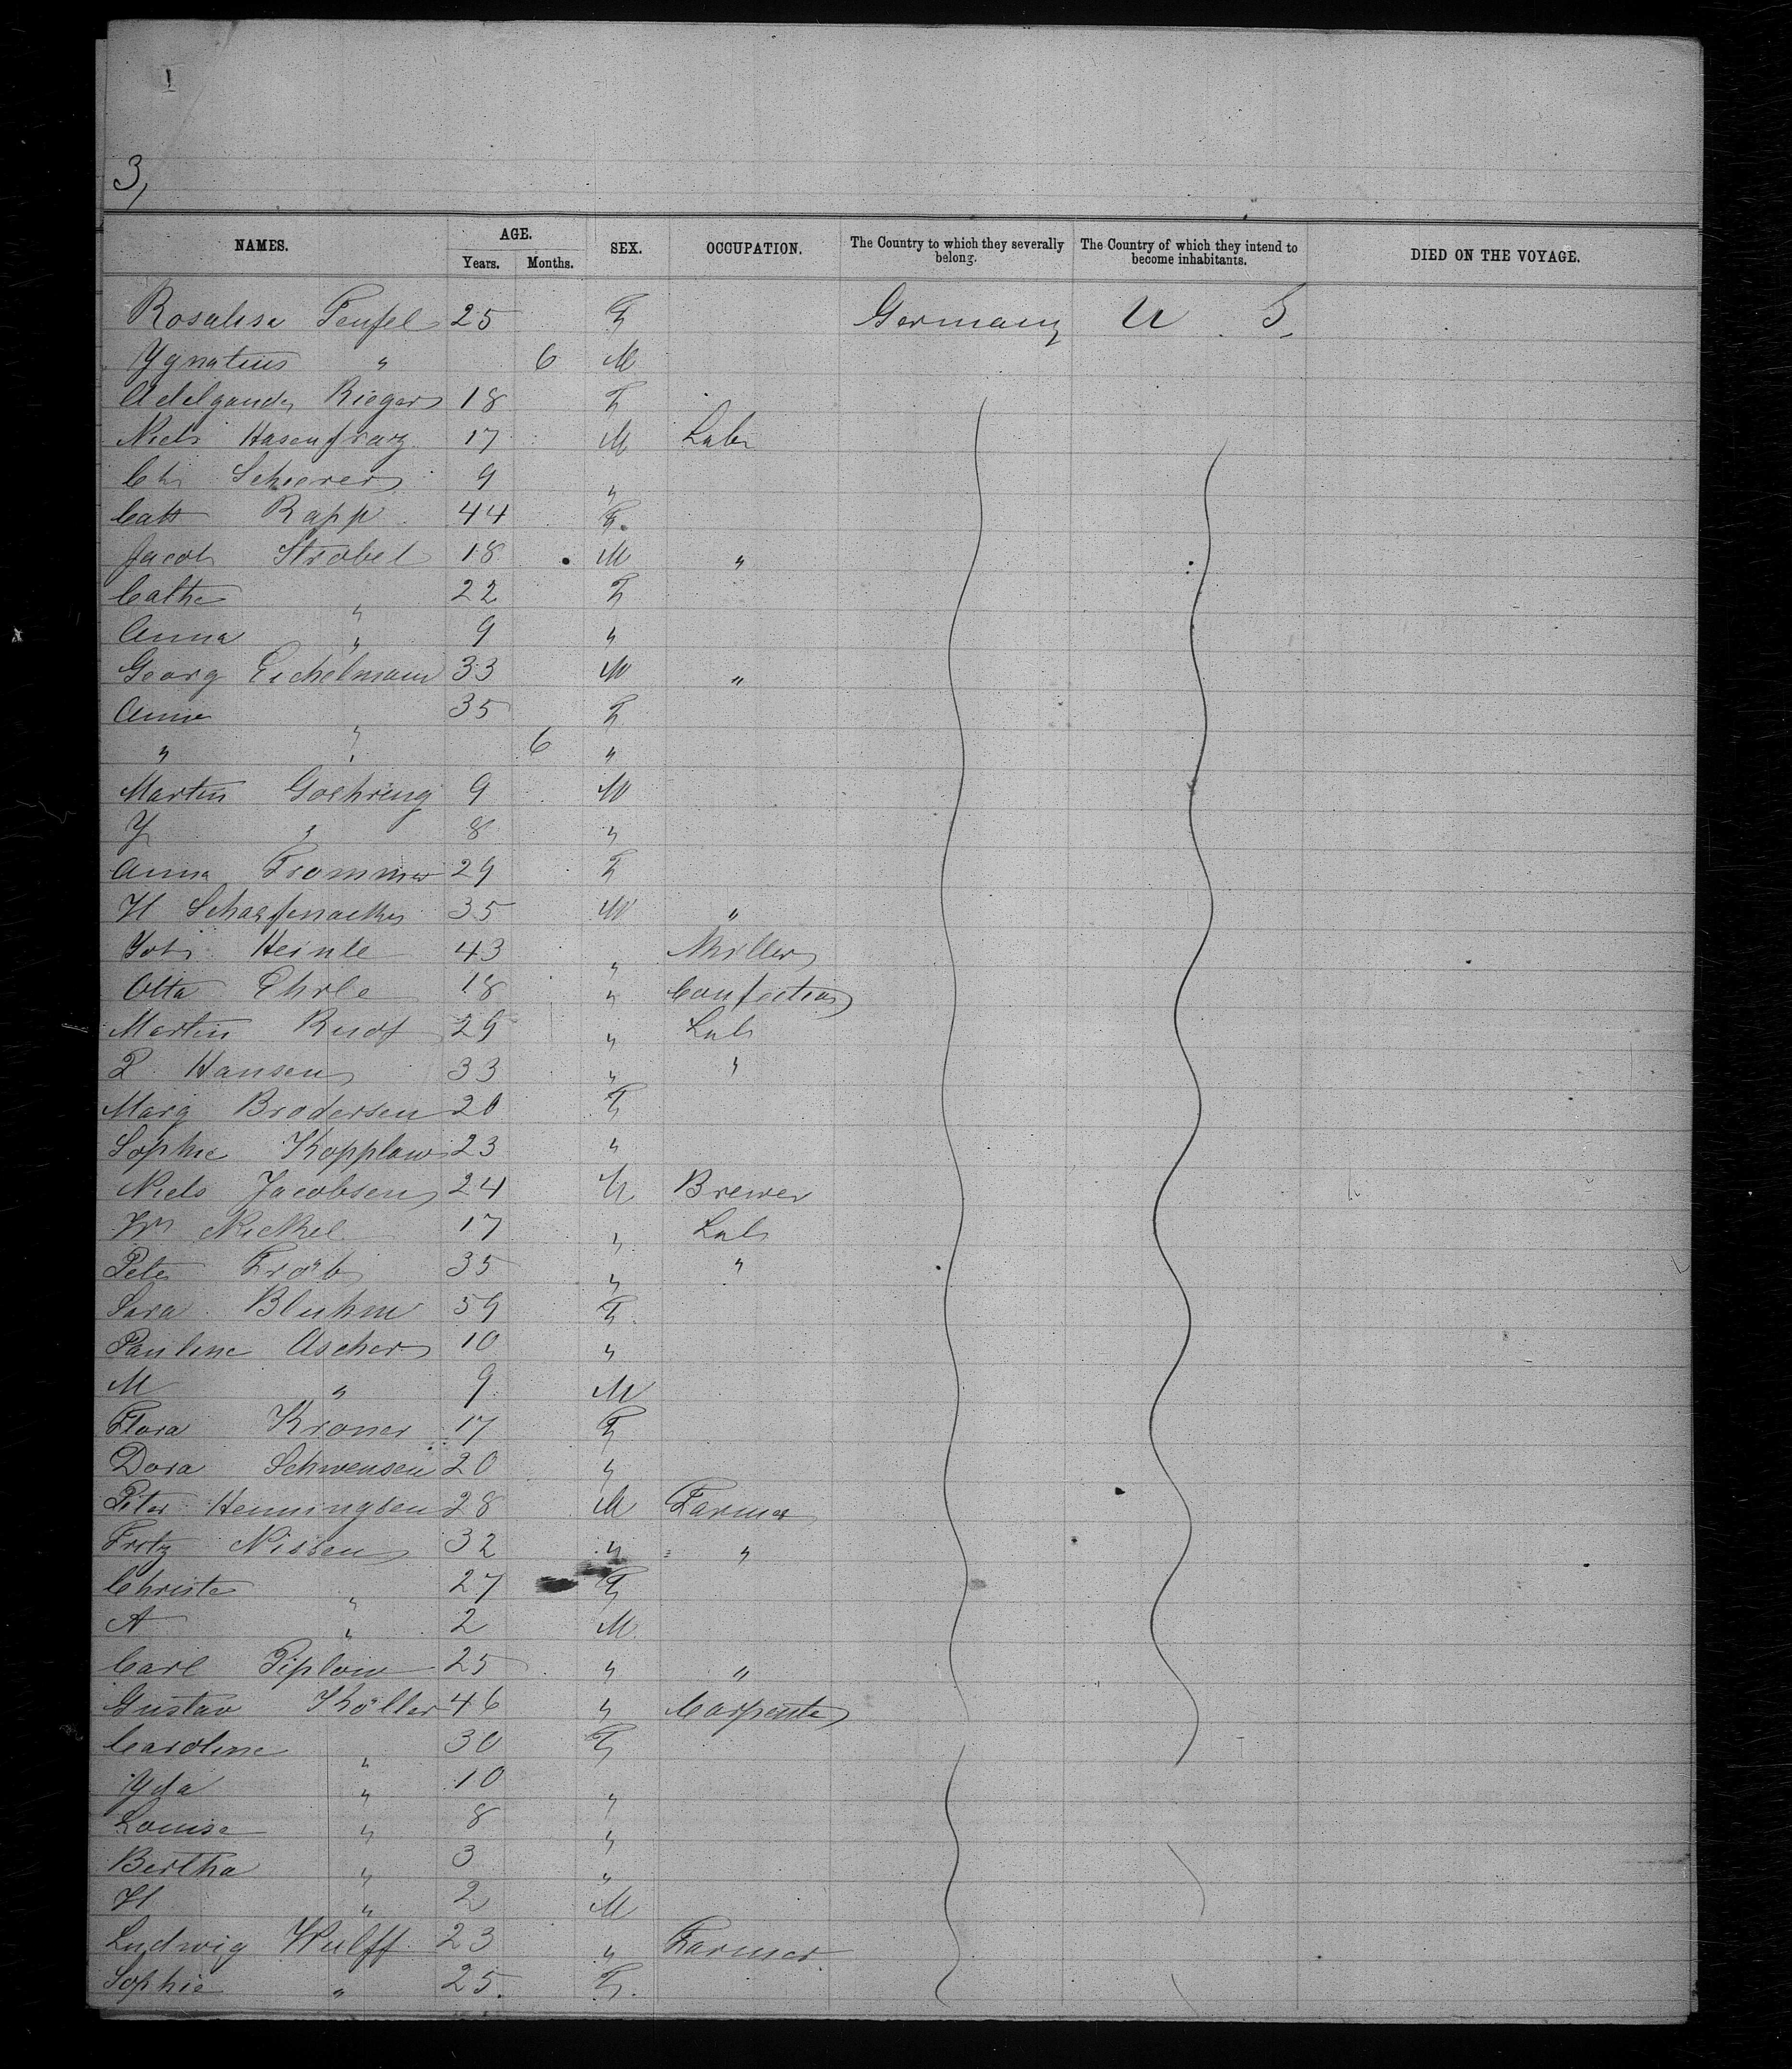 3,
NAMES. AGE. SEX. OCCUPATION. The Country to which they severally belong. The Country of which they intend to become inhabitants. DIED ON THE VOYAGE.
Years. Months.
Rosalisa Teufel 25 F Germany U S
Ygnatius " 6 M
Adelgande Rieger 18 F
Niels 17 M Labr
Ch Scheerer 9 "
Cath Rapp 44 F
Jacob Strobel 18 M "
Cathe " 22 F
Anna " 9 "
Georg Eichelmann 33 M "
Anna " 35 F
" " 6 "
Martin Goehring 9 M
Y " 8 "
Anna Frommer 29 F
H Scharfenacker 35 M "
Joh Heinle 43 " Miller
Otto Ehrle 18 " Confection
Martin 29 " Lab
P Hansen 33 " "
Marg Brodersen 20 F
Sophie Kopplow 23 "
Niels Jacobsen 24 M Brewer
Wm Nickel 17 " Lab
Peter Fröb 35 " "
Sara Bluhm 59 F
Pauline Ascher 10 "
M " 9 M
Flora Kroner 17 F
Dora Schwensen 20 "
Peter Henningsen 28 M Farmer
Fritz Nissen 32 " "
Christe " 27 F
A " 2 M
Carl Piplow 25 " "
Gustav Köller 46 " Carpenter
Caroline " 30 F
Yda " 10 "
Louise " 8 "
Bertha " 3 "
H " 2 M
Ludwig Wulff 23 " Farmer
Sophie " 25 F